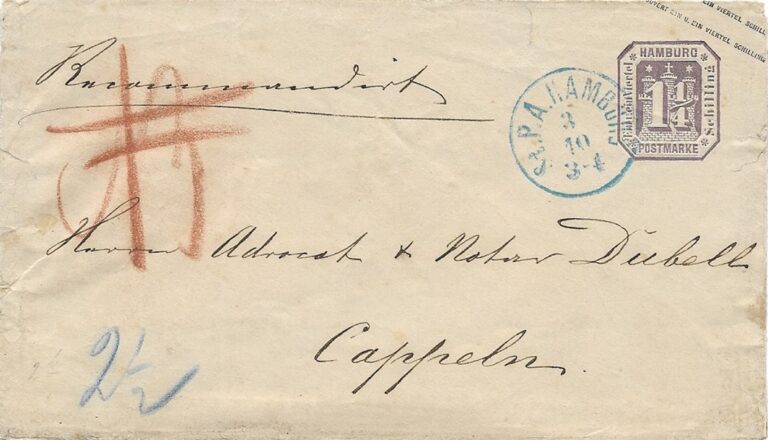 UVERT EIN U. EIN VIERTEL SCHILLING
EIN VIERTEL SCHILL
HAMBURG
Ein u. ein Viertel
1 1/4
Schilling
POSTMARKE
St. P. A. HAMBURG
3
10
3-4
Recommandirt
Herrn Advocat & Notar Dübell
Cappeln.
2 1/2